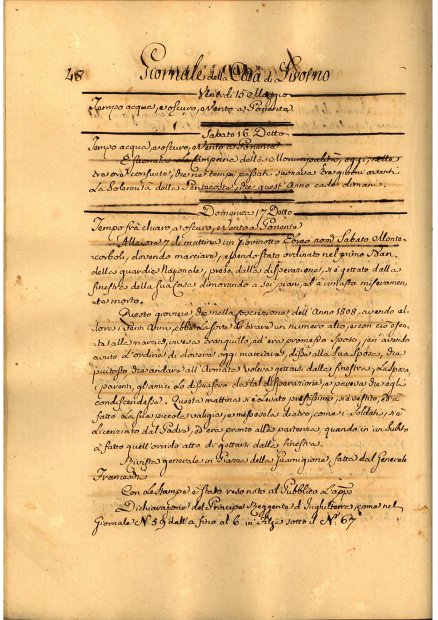 48 Giornale della Città di Livorno
Venerdì 15 Maggio
Tempo acqua, e oscuro, e Vento a Ponente
Sabato 16 Detto
Tempo acqua, e oscuro, e Vento a Ponente
E suonata la Campana della Municipalità, oggi, nella
tre ore consuete, che ne tempi passati suonava tre giorni avanti
la Solennità della Pentecoste, che quest'Anno cade dimani.
Domenica 17 Detto
Tempo frà chiaro, e oscuro, e Vento a Ponente
Alle ore 7 di mattina un Giovinotto Ebreo nom.º Sabato Monte=
corboli, dovendo marciare, essendo stato ordinato nel primo Ban.
della guardia Nazionale, preso dalla disperazione, si è gettato dalla
finestra della sua Casa dimorando a sei piani, ed è rimasto miseramen=
te morto.
Questo giovine che nella coscrizione dell'Anno 1808, avendo al=
lora i venti Anni, ebbe la sorte di tirare un numero alto, e con ciò esen=
te alla marcia, viveva tranquillo, ed era promesso Sposo, jeri avendo
avuto l'ordine di dovere oggi marciare, disse alla sua Sposa, che
piuttosto che andare all'Armata voleva gettarsi dalla finestra, la Sposa,
i parenti, gl'amici lo dissuasero da tal disperazione, e pareva che egli
condiscendesse. Questa mattina si è levato prestissimo, si è vestito, si è
fatto la sua piccola valigia, e messesela dietro, come i Soldati, si è
licenziato dal Padre, ed era pronto alla partenza, quando in un subito
à fatto quell'orrido atto di gettarsi dalla finestra.
Rivista generale in Piazza della Guarnigione, fatta dal Generale
Francese
Con le Stampe è stato reso noto al Pubblico l'app.ª
Dichiarazione del Principe Reggente d'Inghilterra, come nel
Giornale Nº 89 dall'a fino al 6. in Filza sotto il Nº 67